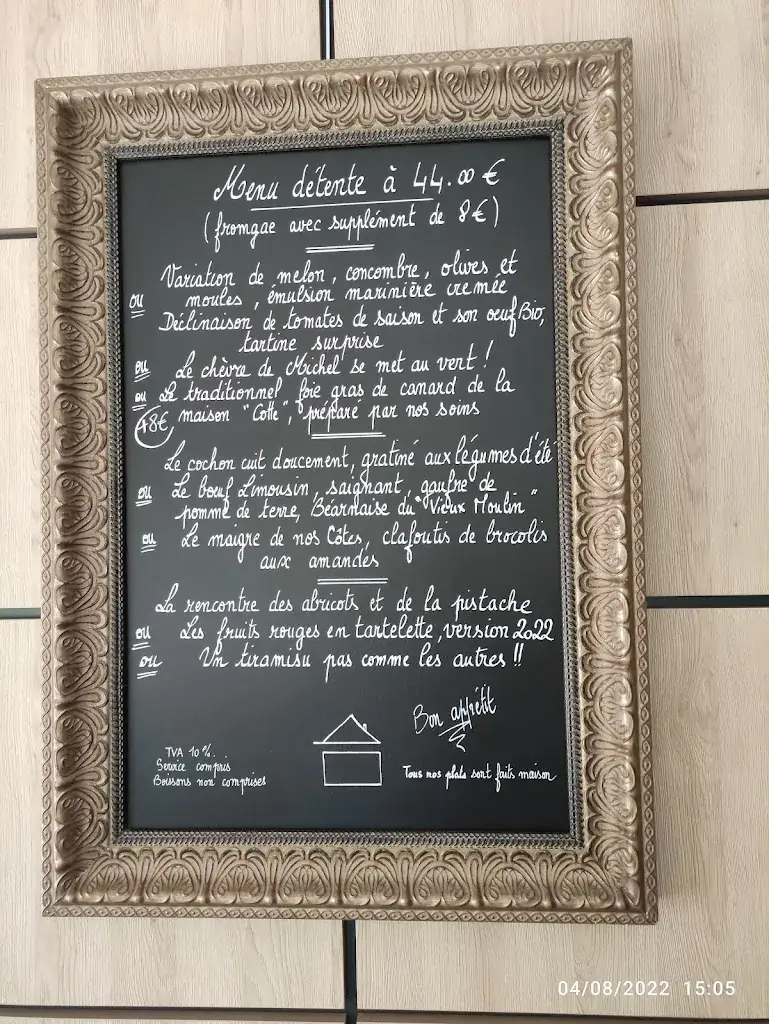 Menu détente à 44.00 €
(fromgae avec supplément de 8€)
Variation de melon, concombre, olives et
ou moules, émulsion marinière cremée
Déclinaison de tomates de saison et son oeuf Bio,
tartine surprise
ou Le chèvre de Michel se met au vert !
ou Le traditionnel foie gras de canard de la
48€ maison "Cotte", préparé par nos soins
Le cochon cuit doucement, gratiné aux légumes d'été
ou Le bœuf Limousin, saignant, gaufre de
pomme de terre, Béarnaise du "Vieux Moulin"
ou Le maigre de nos Côtes, clafoutis de brocolis
aux amandes
La rencontre des abricots et de la pistache
ou Les fruits rouges en tartelette, version 2022
ou Un tiramisu pas comme les autres !!
Bon appétit
TVA 10%.
Service compris
Boissons non comprises
Tous nos plats sont faits maison
04/08/2022 15:05